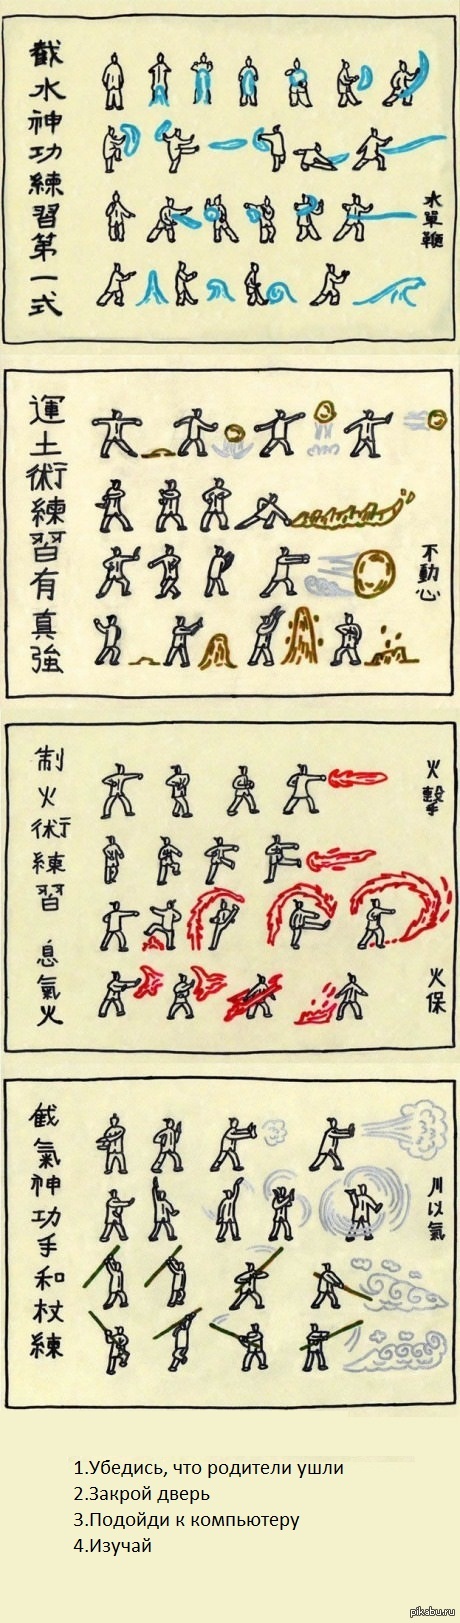 截水神功練習第一式
水單鞭
運土術練習有真強
不動心
制火術練習 息氣火
火擊
火保
截氣神功手和杖練
川以氣
1.Убедись, что родители ушли
2.Закрой дверь
3.Подойди к компьютеру
4.Изучай
pikabu.ru